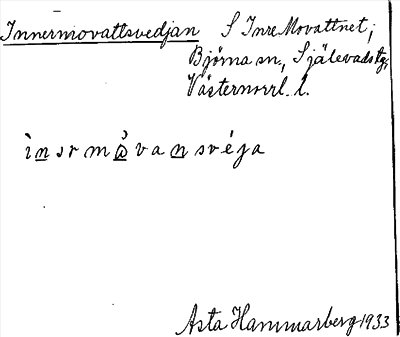 Innermovattsvedjan S Inre Movattnet;
Björna sn, Själevads tg;
Västernorrl. l.
ìnsrmåvansvéja
Asta Hammarberg 1933